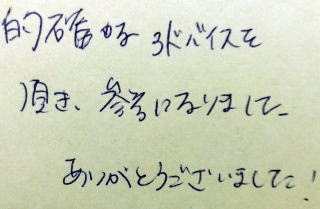 的確なアドバイスを
頂き、参考になりました。
ありがとうございました！